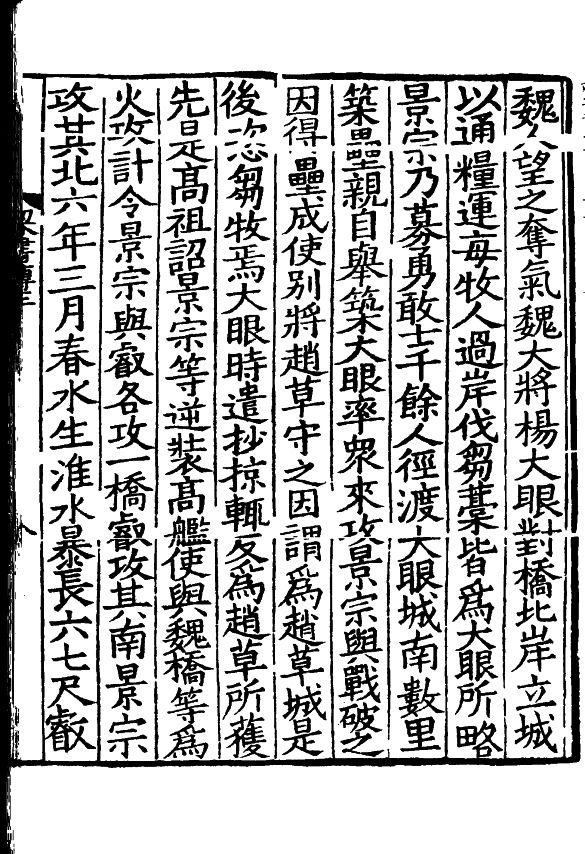 魏人望之奪氣魏大將楊大眼對橋北岸立城
以通糧運每牧人過岸伐芻藁皆爲大眼所略
景宗乃募勇敢士千餘人徑渡大眼城南數里
築壘親自舉築大眼率衆來攻景宗與戰破之
因得壘成使別將趙草守之因謂爲趙草城是
後恣芻牧焉大眼時遣抄掠輒反爲趙草所獲
先是高祖詔景宗等逆裝高艦使與魏橋等爲
火攻計令景宗與叡各攻一橋叡攻其南景宗
攻其北六年三月春水生淮水暴長六七尺叡